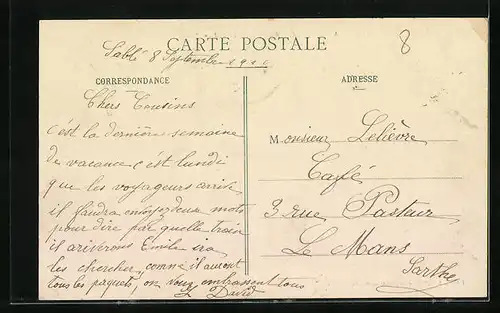 8
CARTE POSTALE
Sablé 8 Septembre 1910
CORRESPONDANCE
ADRESSE
Chers Cousins
c'est la dernière semaine
de vacance c'est lundi
que les voyageurs arrive
il faudra envoyer deux mots
pour dire par quelle train
il ariverons Emile ira
les chercher comme il auront
tous les paquets, on vous embrassent tous
David
Monsieur Lelièvre
Café
3 rue Pasteur
Le Mans
Sarthe